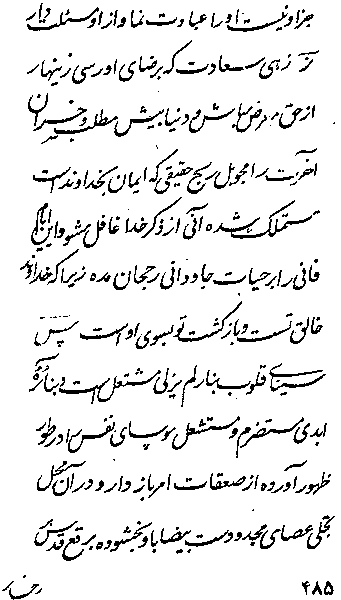 جز او نیست او را عبادت نما و از او مسئلت دار
زهی سعادت که برضای او رسی زینهار
از حق معرض مباش و دنیا بیش مطلب و خسران
آخرت را مجوی ربح حقیقی که ایمان بخداوند است
شده آنی از ذکر خدا غافل مشو و این ایام
فانی را بر حیات جاودانی رجحان مده زیرا که خداوند
خالق تست و بازگشت تو بسوی او است پس
سینای قلوب بنار لم یزلی مشتعل است و بنائره
ابدی مستضرم و مستشعل موسای نفس را در طور
ظهور آورده از صعقات امر باز دار و در آن محل
تجلی عصای مجدود ست بیضا با و ببخش و ده برقع قدس
۴۸۵